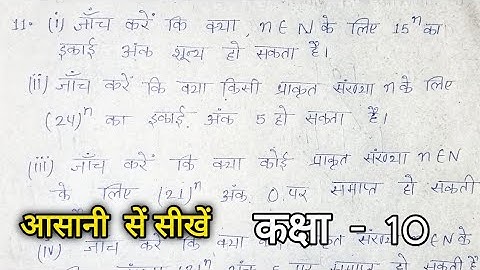 11. (i) जाँच करें कि क्या, n ∈ N के लिए 15ⁿ का
इकाई अंक शून्य हो सकता है।
(ii) जाँच करें कि क्या किसी प्राकृत संख्या n के लिए
(24)ⁿ का इकाई अंक 5 हो सकता है।
(iii) जाँच करें कि क्या कोई प्राकृत संख्या n ∈ N
के लिए (21)ⁿ अंक 0 पर समाप्त हो सकती
आसानी सें सीखें कक्षा - 10
(iv) जाँच करें कि क्या n ∈ N के
पर समाप्त हो सकती है